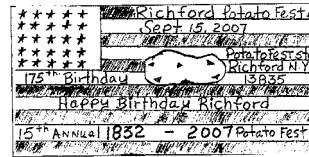 Richford Potato Fest
Sept 15, 2007
Potato Fest Stn
Richford NY
175th Birthday
13835
Happy Birthday Richford
15th Annual 1832 - 2007 Potato Fest